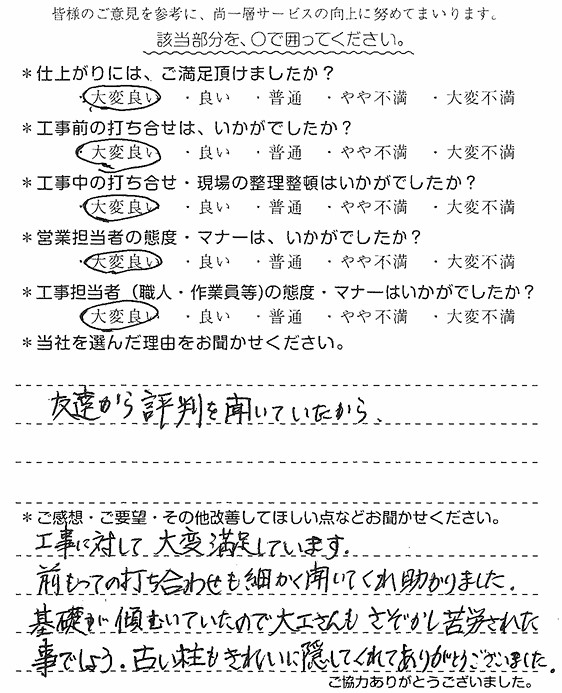 皆様のご意見を参考に、尚一層サービスの向上に努めてまいります。
該当部分を、〇で囲ってください。
＊仕上がりには、ご満足頂けましたか？
・大変良い ・良い ・普通 ・やや不満 ・大変不満
＊工事前の打ち合せは、いかがでしたか？
・大変良い ・良い ・普通 ・やや不満 ・大変不満
＊工事中の打ち合せ・現場の整理整頓はいかがでしたか？
・大変良い ・良い ・普通 ・やや不満 ・大変不満
＊営業担当者の態度・マナーは、いかがでしたか？
・大変良い ・良い ・普通 ・やや不満 ・大変不満
＊工事担当者（職人・作業員等)の態度・マナーはいかがでしたか？
・大変良い ・良い ・普通 ・やや不満 ・大変不満
＊当社を選んだ理由をお聞かせください。
友達から評判を聞いていたから、
＊ご感想・ご要望・その他改善してほしい点などお聞かせください。
工事に対して大変満足しています.
前もっての打ち合わせも細かく聞いてくれ助かりました.
基礎が傾むいていたので大工さんもさぞかし苦労された
事でしょう. 古い柱もきれいに隠してくれてありがとうございました.
ご協力ありがとうございました。